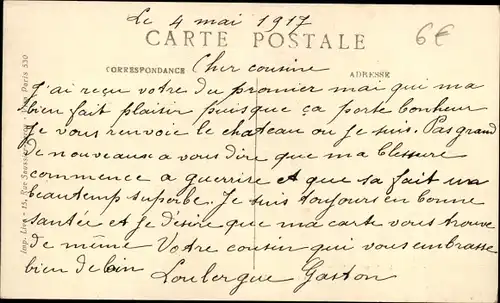 Le 4 mai 1917
6€
CARTE POSTALE
CORRESPONDANCE
Cher cousine
ADRESSE
J'ai reçu votre du premier mai qui ma
bien fait plaisir puisque ça porte bonheur
Je vous renvoie le chateau ou je suis. Pas grand
de nouveaus a vous dire que ma blessure
commence a guerrire et que sa fait un
beautemp superbe. Je suis toujours en bonne
santée et je désire que ma carte vous trouve
de même Votre cousin qui vous embrasse
bien de loin
Loulergue Gaston
Imp. Liva - 15, Rue Paris 530